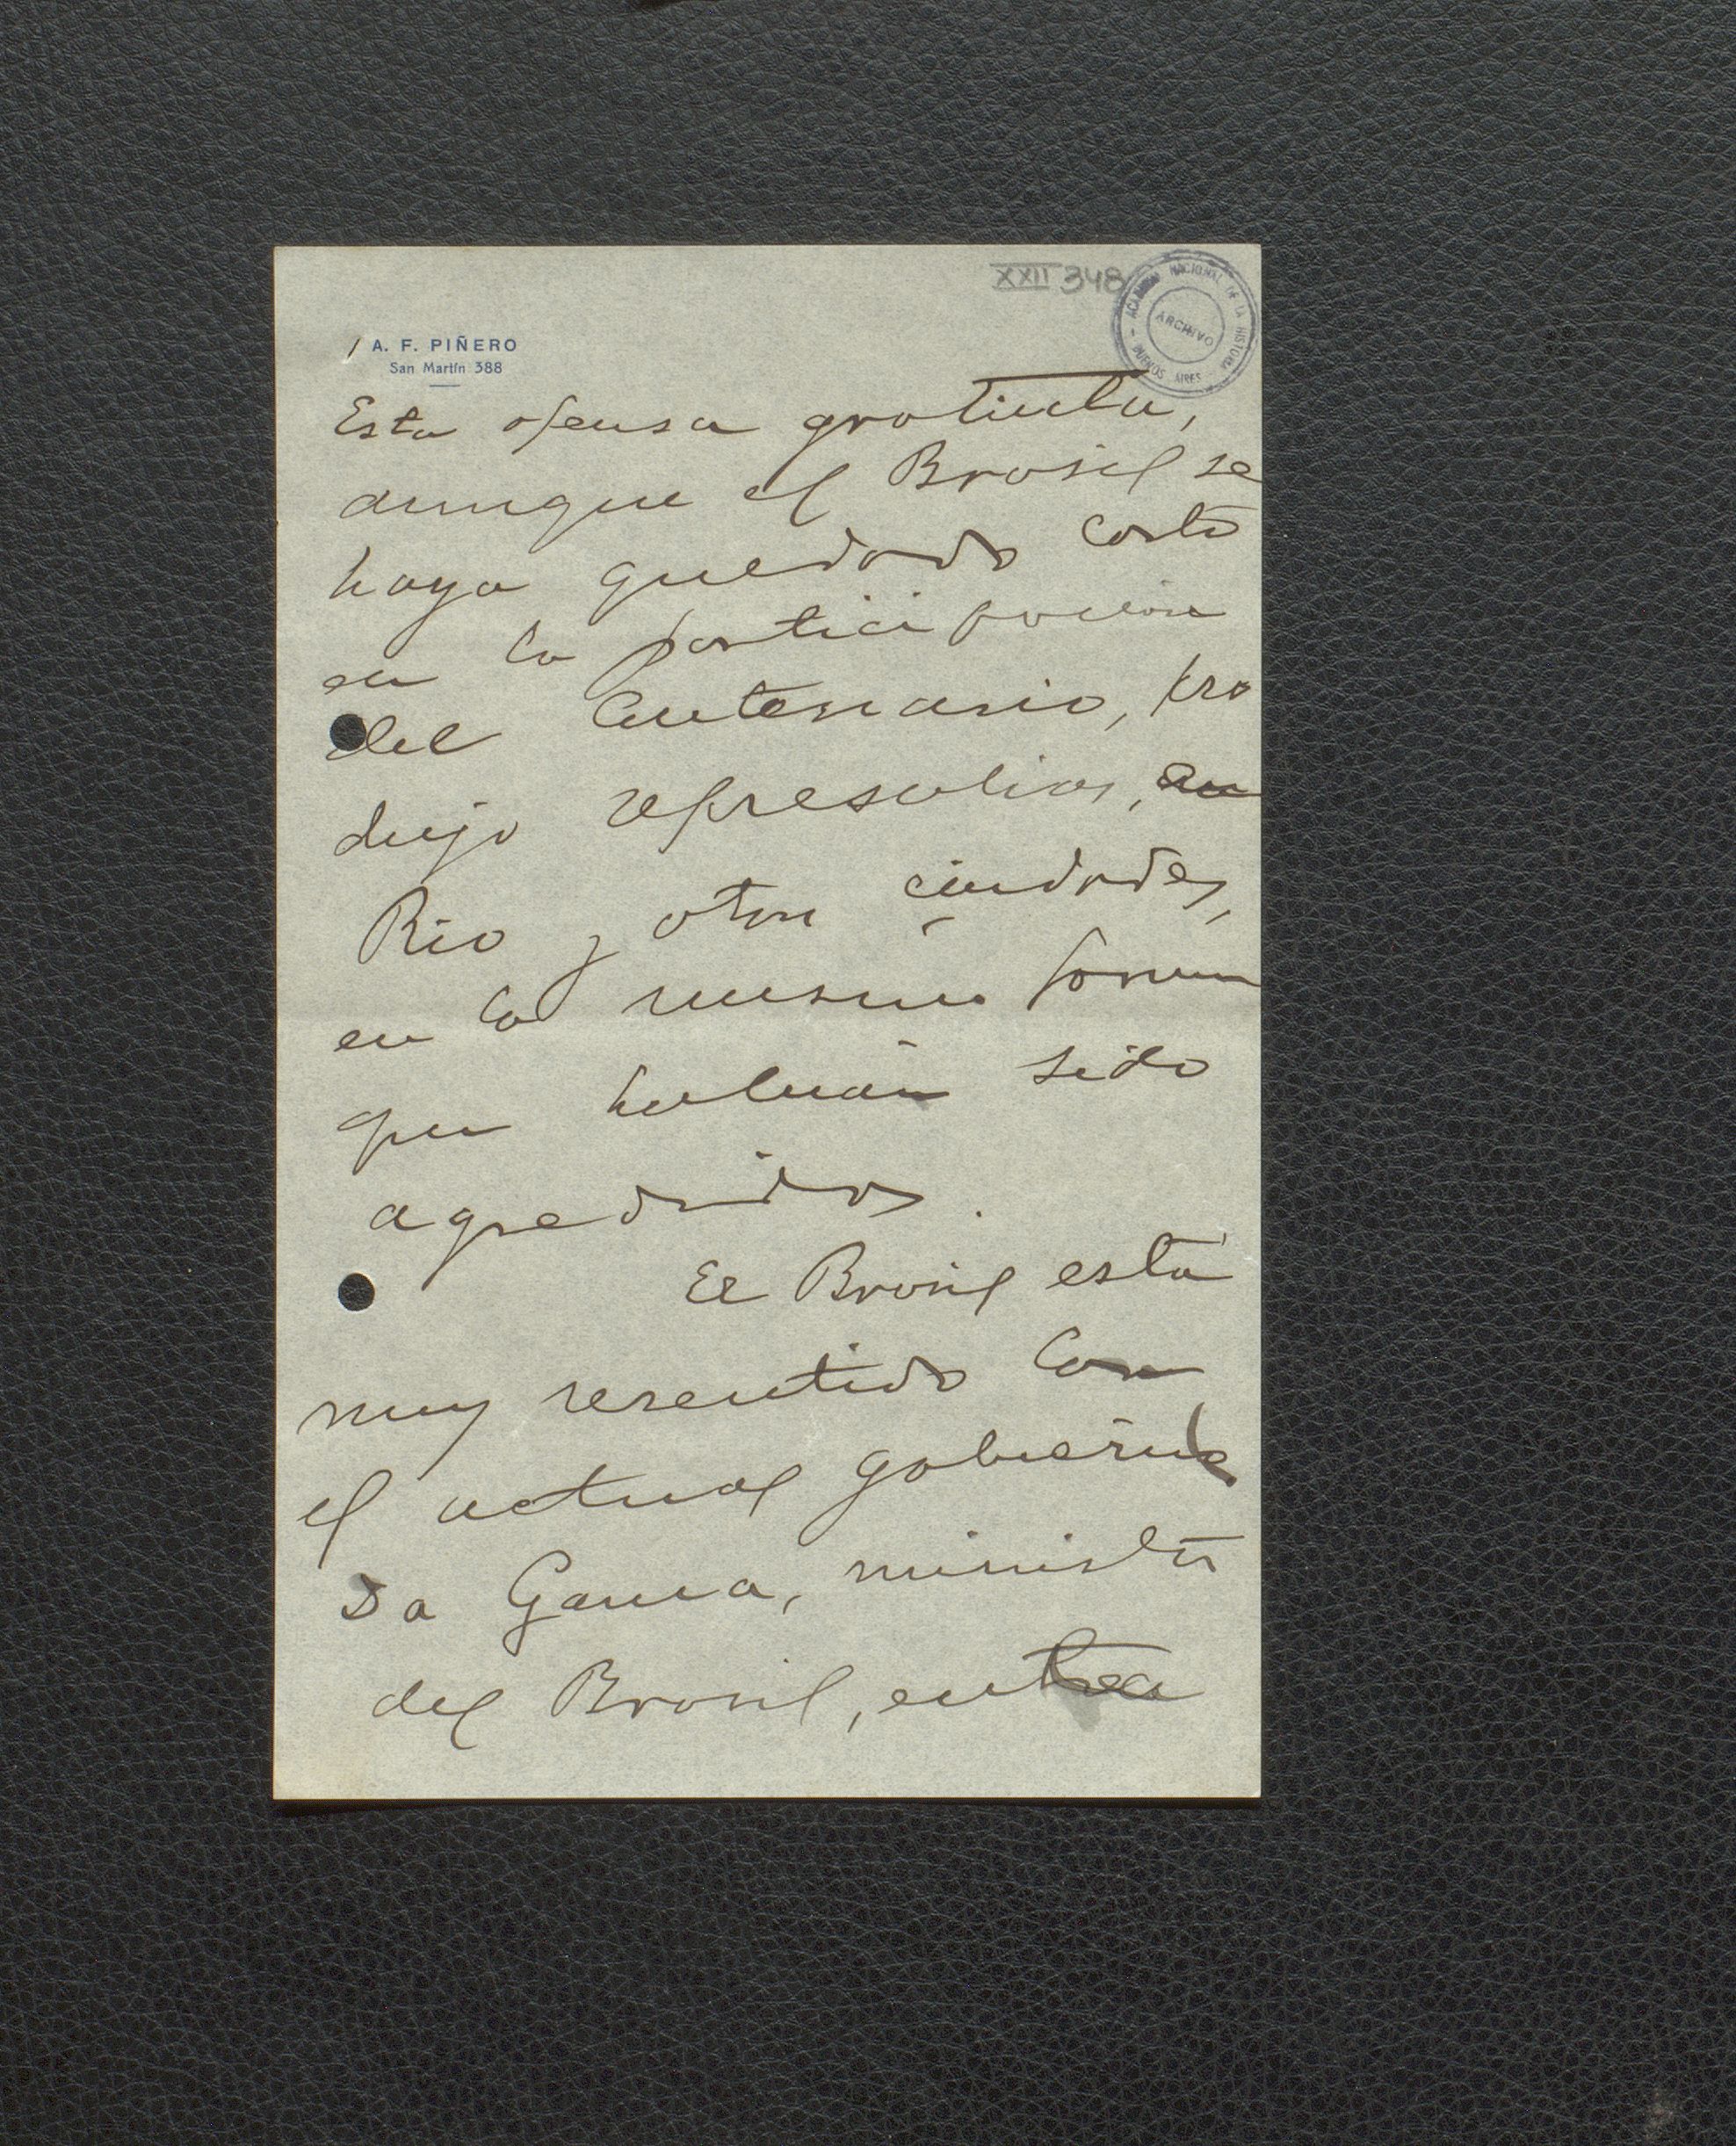 XXII 348
ACADEMIA NACIONAL DE LA HISTORIA - BUENOS AIRES -
ARCHIVO
A. F. PIÑERO
San Martín 388
Esta ofensa gratuita,
aunque el Brasil se
haya quedado corto
en la participación
del Centenario, pro
dujo represalias, en
Rio y otras ciudades,
en la misma forma
que habían sido
agredidos.
El Brasil está
muy resentido con
el actual gobierno
Da Gama, ministro
del Brasil, entra